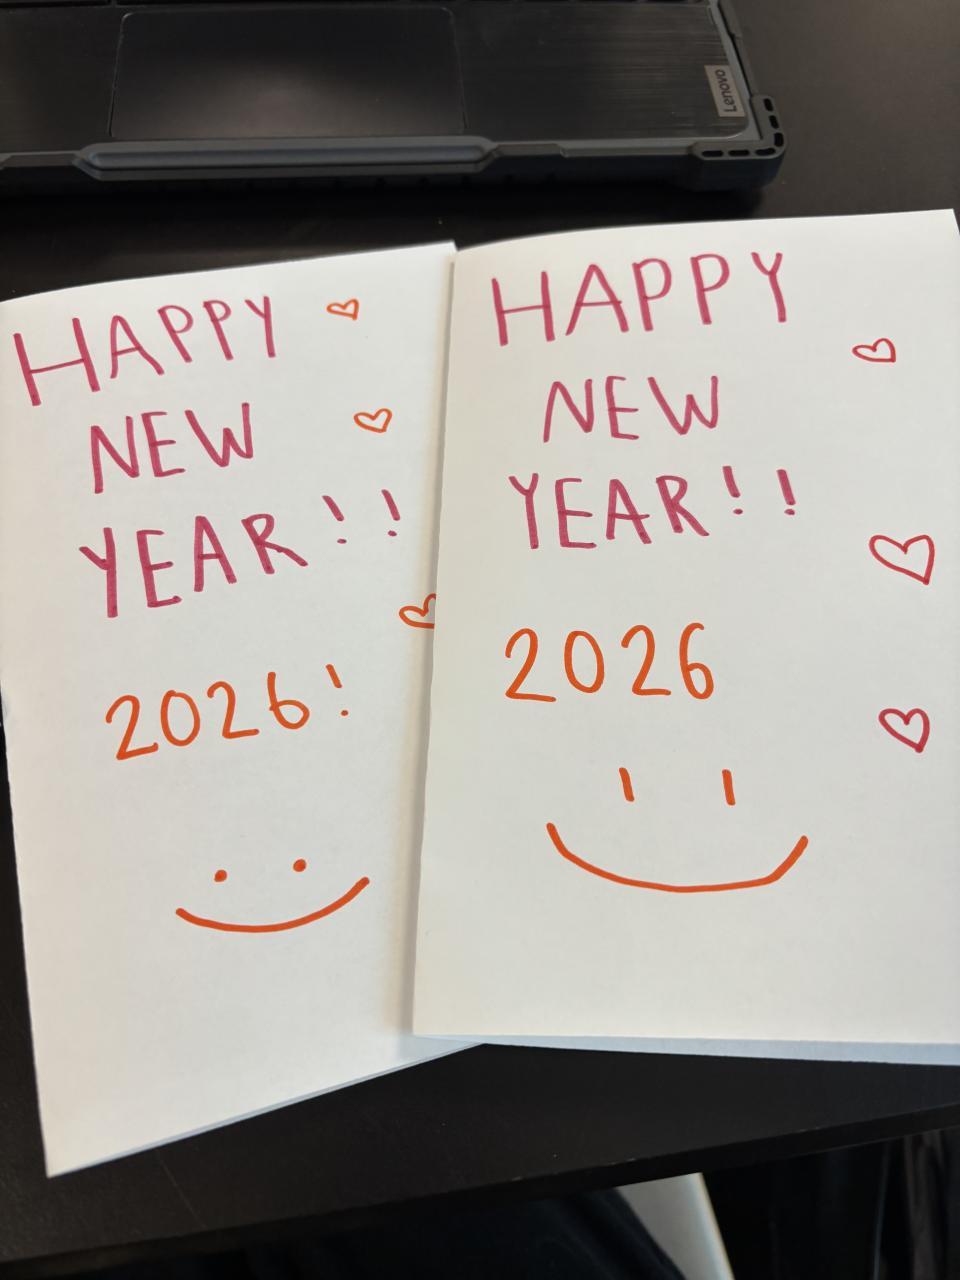 Lenovo
HAPPY
NEW
YEAR!!
2026!
HAPPY
NEW
YEAR!!
2026